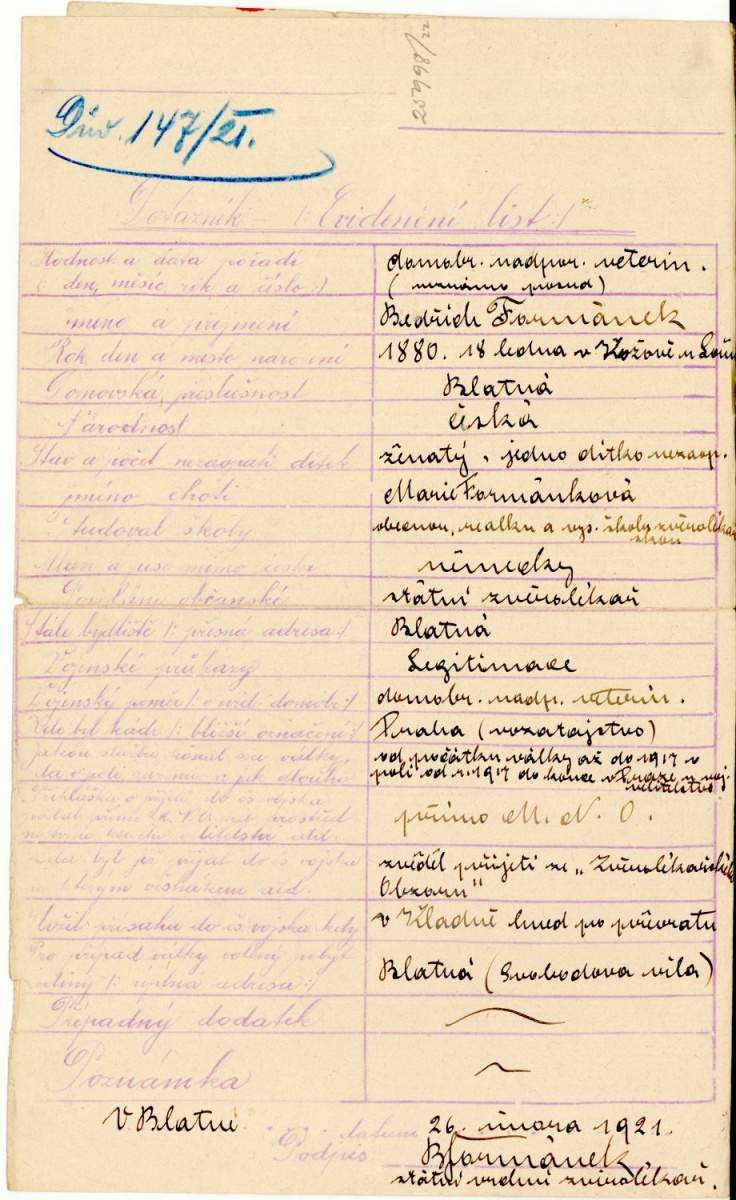 25998/22
Dův. 147/21.
Dotazník - /: Evidenční list :/
Hodnost a data pořadí
/: den, měsíc, rok a číslo :/
domobr. nadpor. veterin.
(neznámo posud)
Jméno a příjmení
Bedřich Formánek
Rok den a místo narození
1880. 18 ledna v
Domovská příslušnost
Blatná
Národnost
česká
Stav a počet nezaopatř. dítek
ženatý, jedno dítko nezaop.
jméno choti
Marie Formánková
Studoval školy
obecnou, reálku a vys. školu zvěrolékař
skou
německy
Povolání občanské
státní zvěrolékař
Stálé bydliště /: přesná adresa :/
Blatná
Vojenské průkazy
Legitimace
Vojenský poměr
domobr. nadp. veterin.
Kde byl kádr /: bližší označení :/
Praha (vozatajstvo)
Jakou službu konal za války,
od počátku války až do 1917 v
poli od r. 1917 do konce v Praze u voj.
velitelstva
Přihláška o přijetí do čs vojska
přímo M. N. O.
byl již přijat do čs vojska
zvěděl přijetí ze „Zvěrolékařských
Obzorů"
Složil přísahu do čs vojska kdy
v Kladně hned po převratu
Pro případ války volený pobyt
rodiny /: úplná adresa :/
Blatná (Svobodova vila)
Případný dodatek
Poznámka
V Blatné
datum
26. února 1921.
Podpis
BFormánek
státní vrchní zvěrolékař.